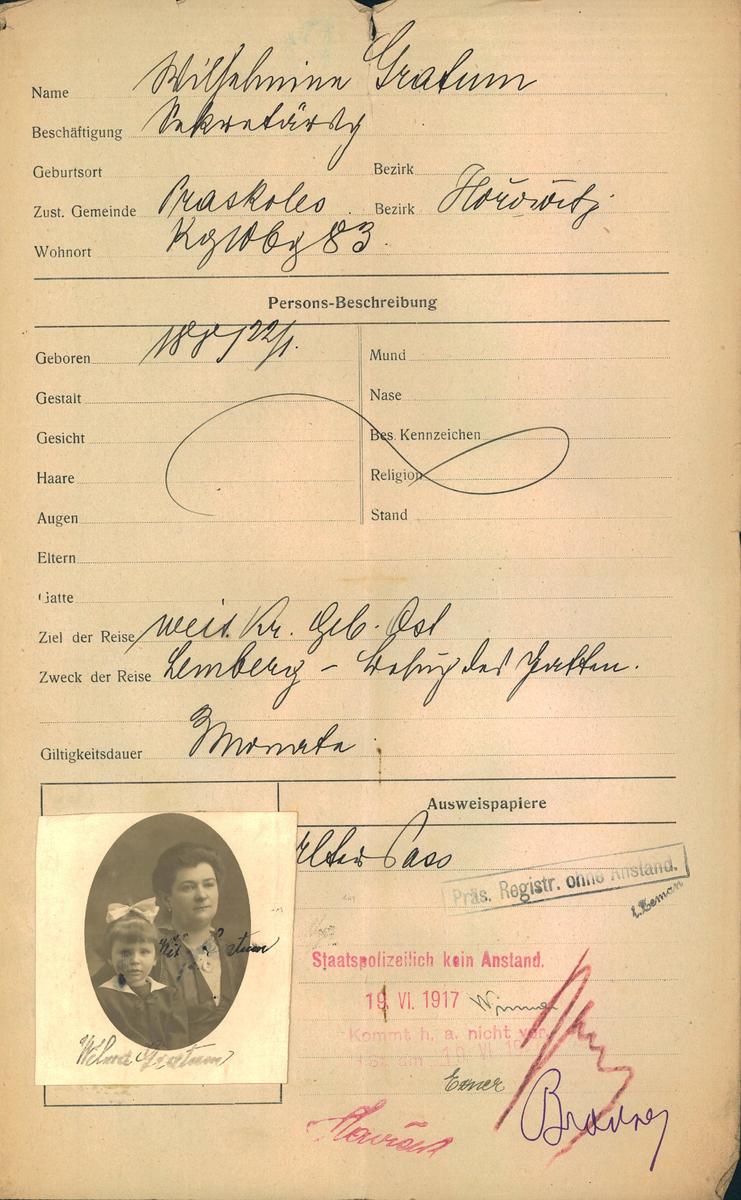 Name Wilhelmine Gratum
Beschäftigung Sekretärsg
Geburtsort Bezirk
Zust. Gemeinde Praskoles Bezirk Hořowitz
Wohnort Kg Wbg 83.
Persons-Beschreibung
Geboren 22/1.
Mund
Gestalt
Nase
Gesicht
Bes. Kennzeichen
Haare
Religion
Augen
Stand
Eltern
Gatte
Ziel der Reise weit. Kr. Geb. Ost
Zweck der Reise Lemberg - Besuch des Gatten.
Giltigkeitsdauer 3 Monate
Ausweispapiere
Alter Pass
Präs. Registr. ohne Anstand.
Staatspolizeilich kein Anstand.
19. VI. 1917
Kommt h. a. nicht vor.
Exner
Wilma Gratum